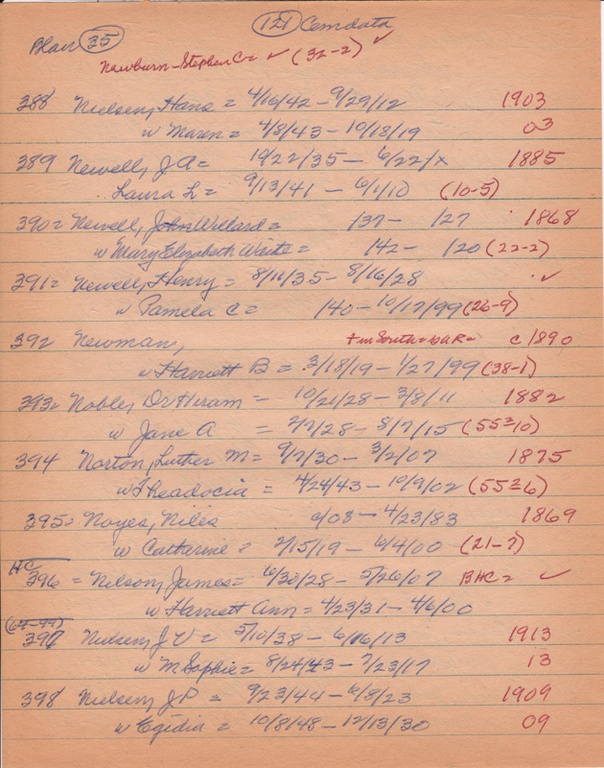 Blair 35 121 Cemdata
Newburn - Stephen C = ✓ (32-2) ✓
388 Nielsen, Hans = 4/16/42 - 9/29/12 1903
w Maren = 4/8/43 - 10/18/19 03
389 Newell, J A = 10/22/35 - 6/22/x 1885
Laura L = 9/13/41 - 6/1/10 (10-5)
390 = Newell, John Willard = 137 - 127 1868
w Mary Elizabeth Waite = 142 - 120 (22-2)
391 = Newell, Henry = 8/11/35 - 8/16/28 ✓
w Pamela C = 140 - 10/17/99 (26-9)
392 Newman, + in South = c 1890
w Harriett B = 3/18/19 - 1/27/99 (38-1)
393 = Noble, Dr Hiram = 10/21/28 - 3/8/11 1882
w Jane A = 2/7/28 - 8/7/15 (55=10)
394 Norton, Luther M = 9/7/30 - 3/2/07 1875
w Theadocia = 4/24/43 - 10/9/02 (55=6)
395 = Noyes, Niles c/08 - 4/23/83 1869
w Catharine = 2/15/19 - 6/4/00 (21-7)
HC
396 = Nelson, James = 6/30/28 - 5/26/07 BHC = ✓
w Harriett Ann = 4/23/31 - 4/6/00
397 Nielsen, J V = 5/10/38 - 6/16/13 1913
w M Sophie = 8/24/43 - 7/23/17 13
398 Nielsen, J P = 9/23/44 - 6/8/23 1909
w Egidia = 10/8/48 - 12/13/30 09